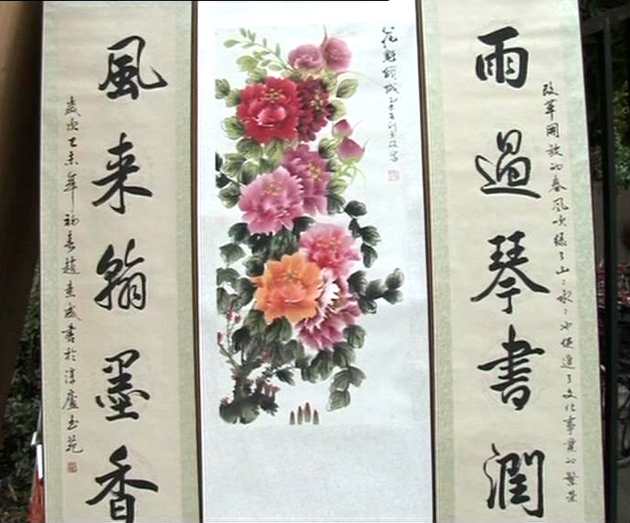 雨過琴書潤
改革開放的春風吹綠了山山水水也促進了文化事業的繁榮
風来翰墨香
歲次乙未年初春趙
書於淳廬玉苑